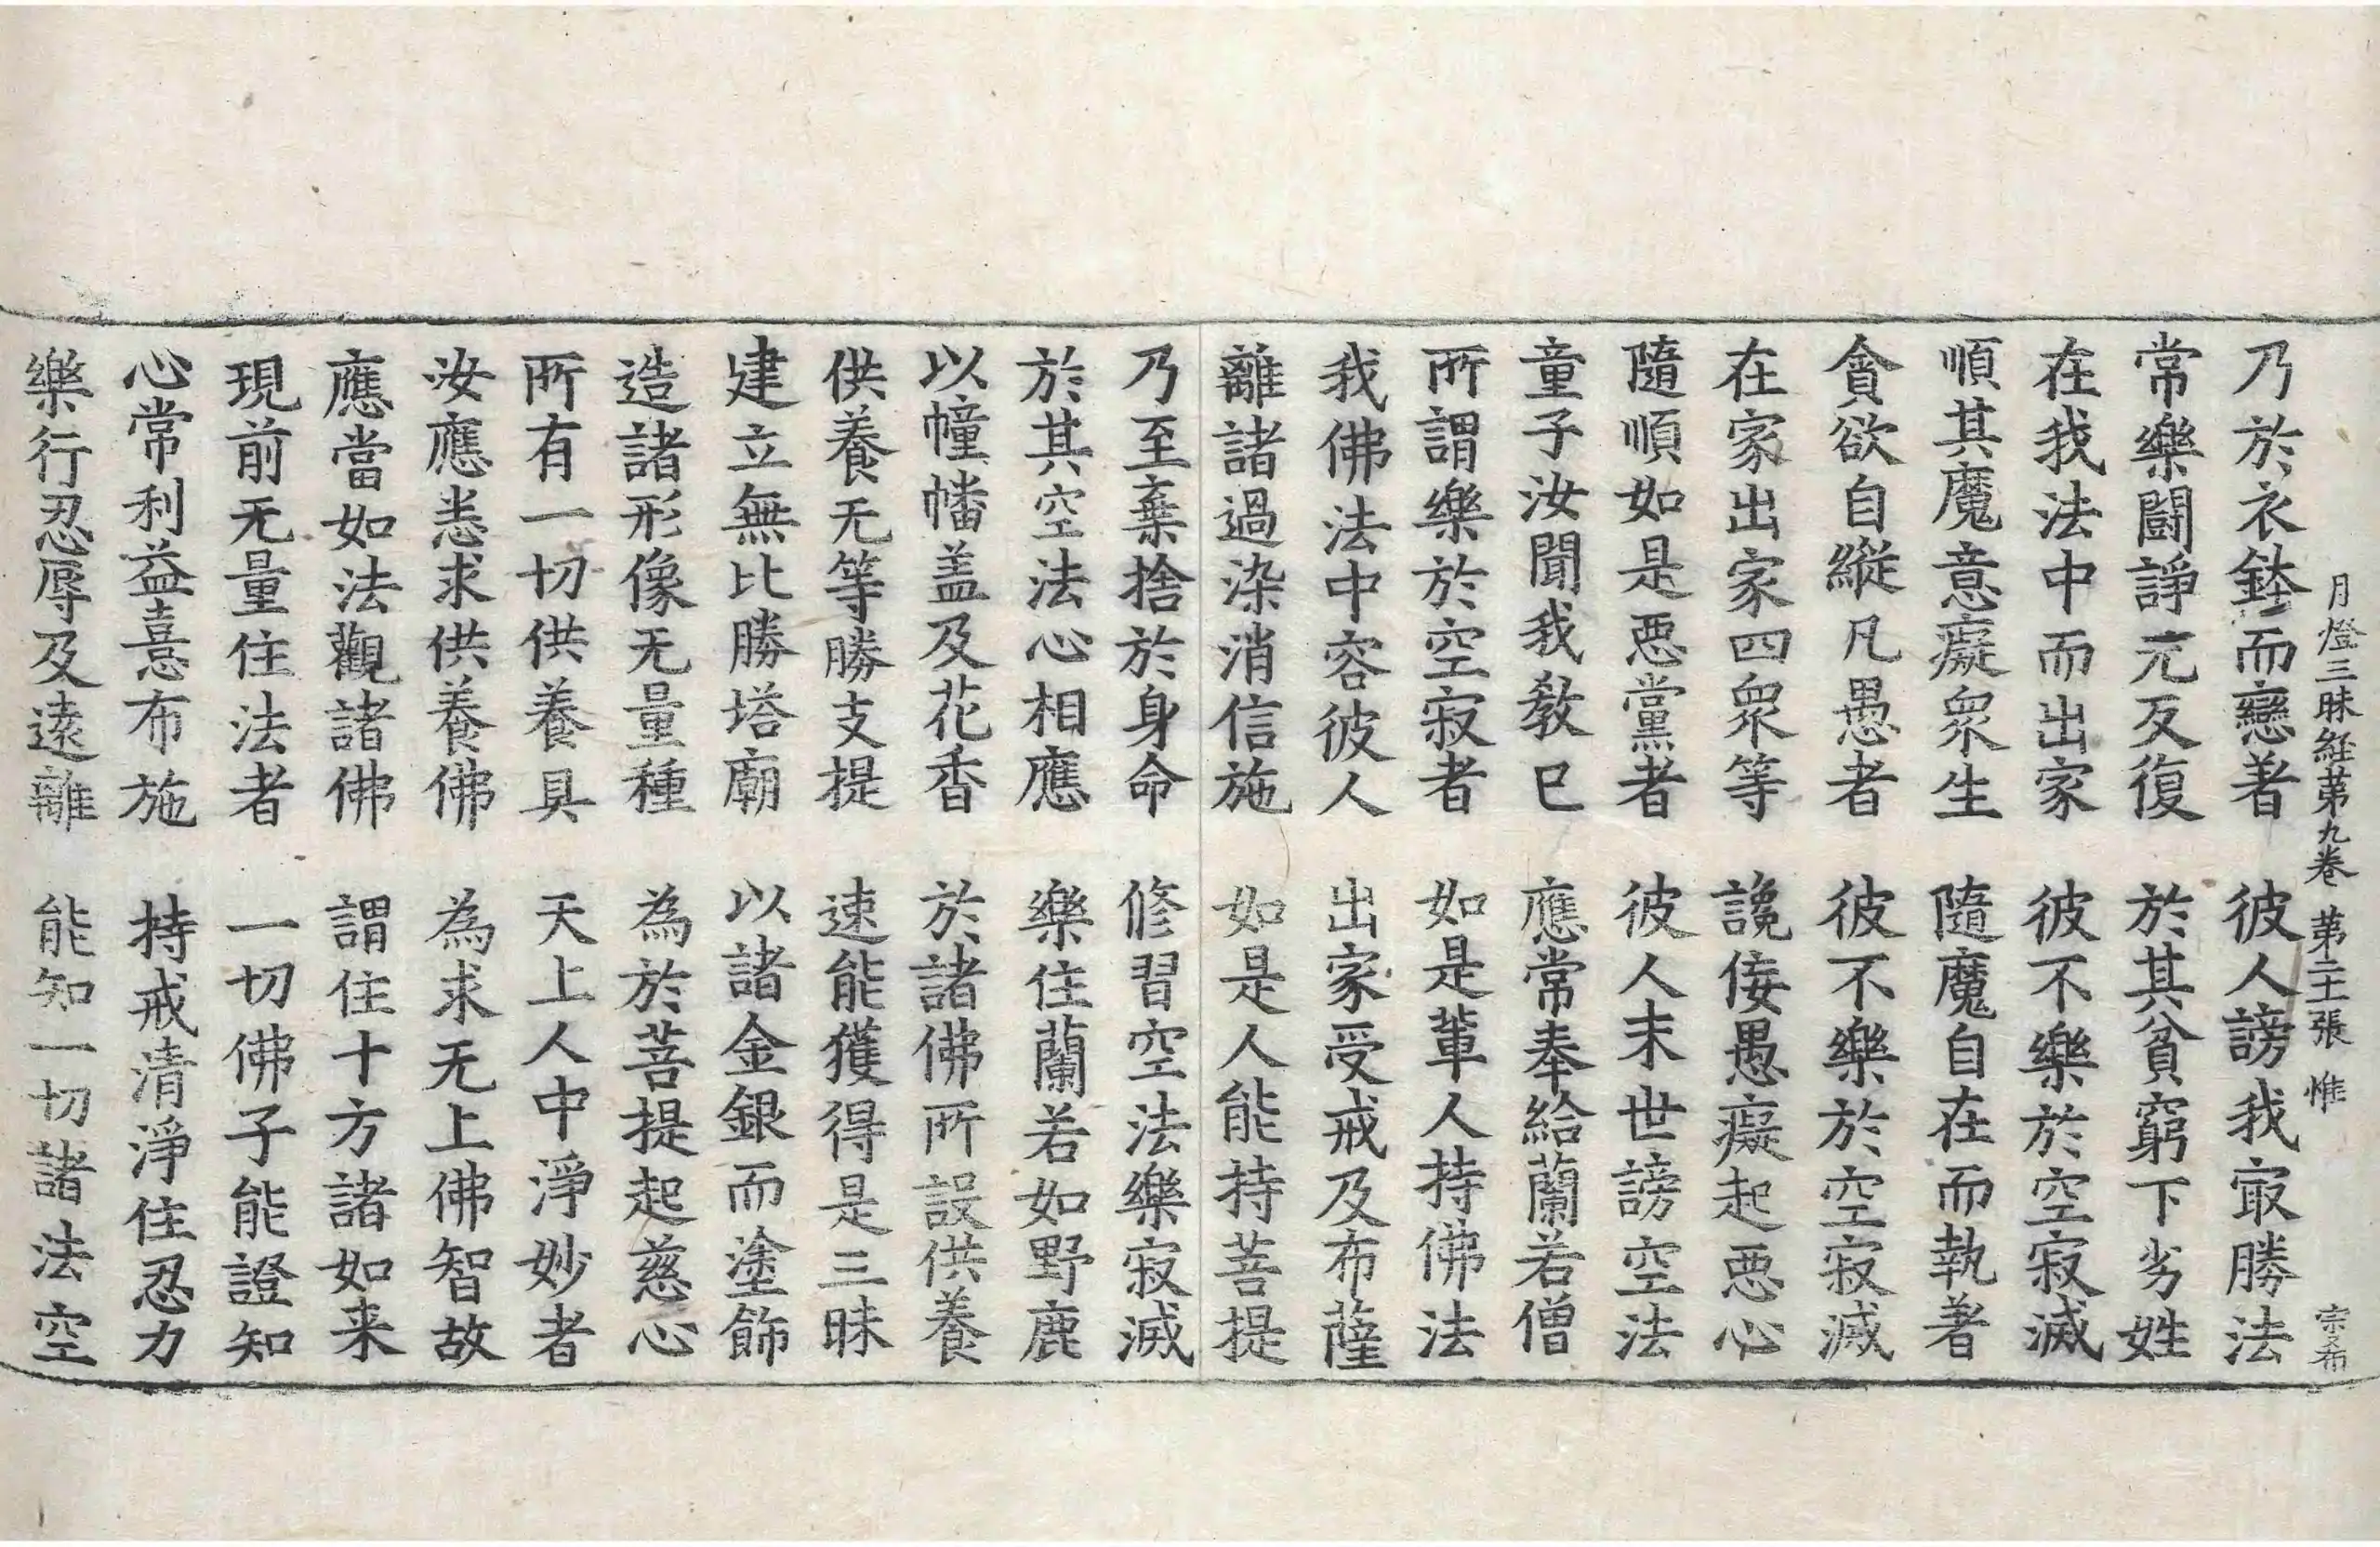 月燈三昧経第九卷 第二十張 惟 宗布
乃於衣鉢而戀著 彼人謗我㝡勝法
常樂鬪諍亢反復 於其貧窮下劣姓
在我法中而出家 彼不樂於空寂滅
順其魔意癡衆生 隨魔自在而執著
貪欲自縱凡愚者 彼不樂於空寂滅
在家出家四衆等 讒佞愚癡起悪心
隨順如是悪黨者 彼人末世謗空法
童子汝聞我教已 應常奉給蘭若僧
所謂樂於空寂者 如是軰人持佛法
我佛法中容彼人 出家受戒及布薩
離諸過染消信施 如是人能持菩提
乃至棄捨於身命 修習空法樂寂滅
於其空法心相應 樂住蘭若如野鹿
以幢幡盖及花香 於諸佛所設供養
供養无等勝支提 速能獲得是三昧
建立無比勝塔廟 以諸金銀而塗飾
造諸形像无量種 為於菩提起慈心
所有一切供養具 天上人中淨妙者
汝應悉求供養佛 為求无上佛智故
應當如法觀諸佛 謂住十方諸如来
現前无量住法者 一切佛子能證知
心常利益憙布施 持戒清淨住忍力
樂行忍辱及遠離 能知一切諸法空